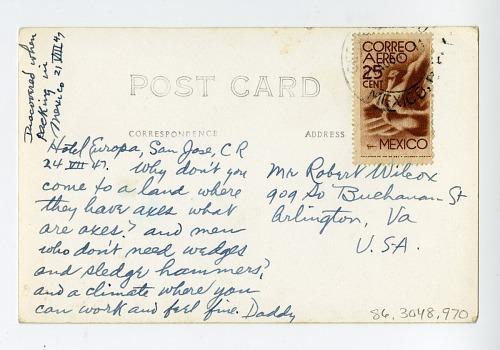 Discovered when
packing in
Mexico 21 VIII 47
POST CARD
CORRESPONDENCE
ADDRESS
CORREO
AEREO
25
CENT
MEXICO
Hotel Europa, San Jose, CR
24 VII 47. Why don't you
come to a land where
they have axes what
are axes? and men
who don't need wedges
and sledge hammers?
and a climate where you
can work and feel fine. Daddy
Mr Robert Wilcox
909 So Buchanan St
Arlington, Va
U.S.A.
86.3048.970